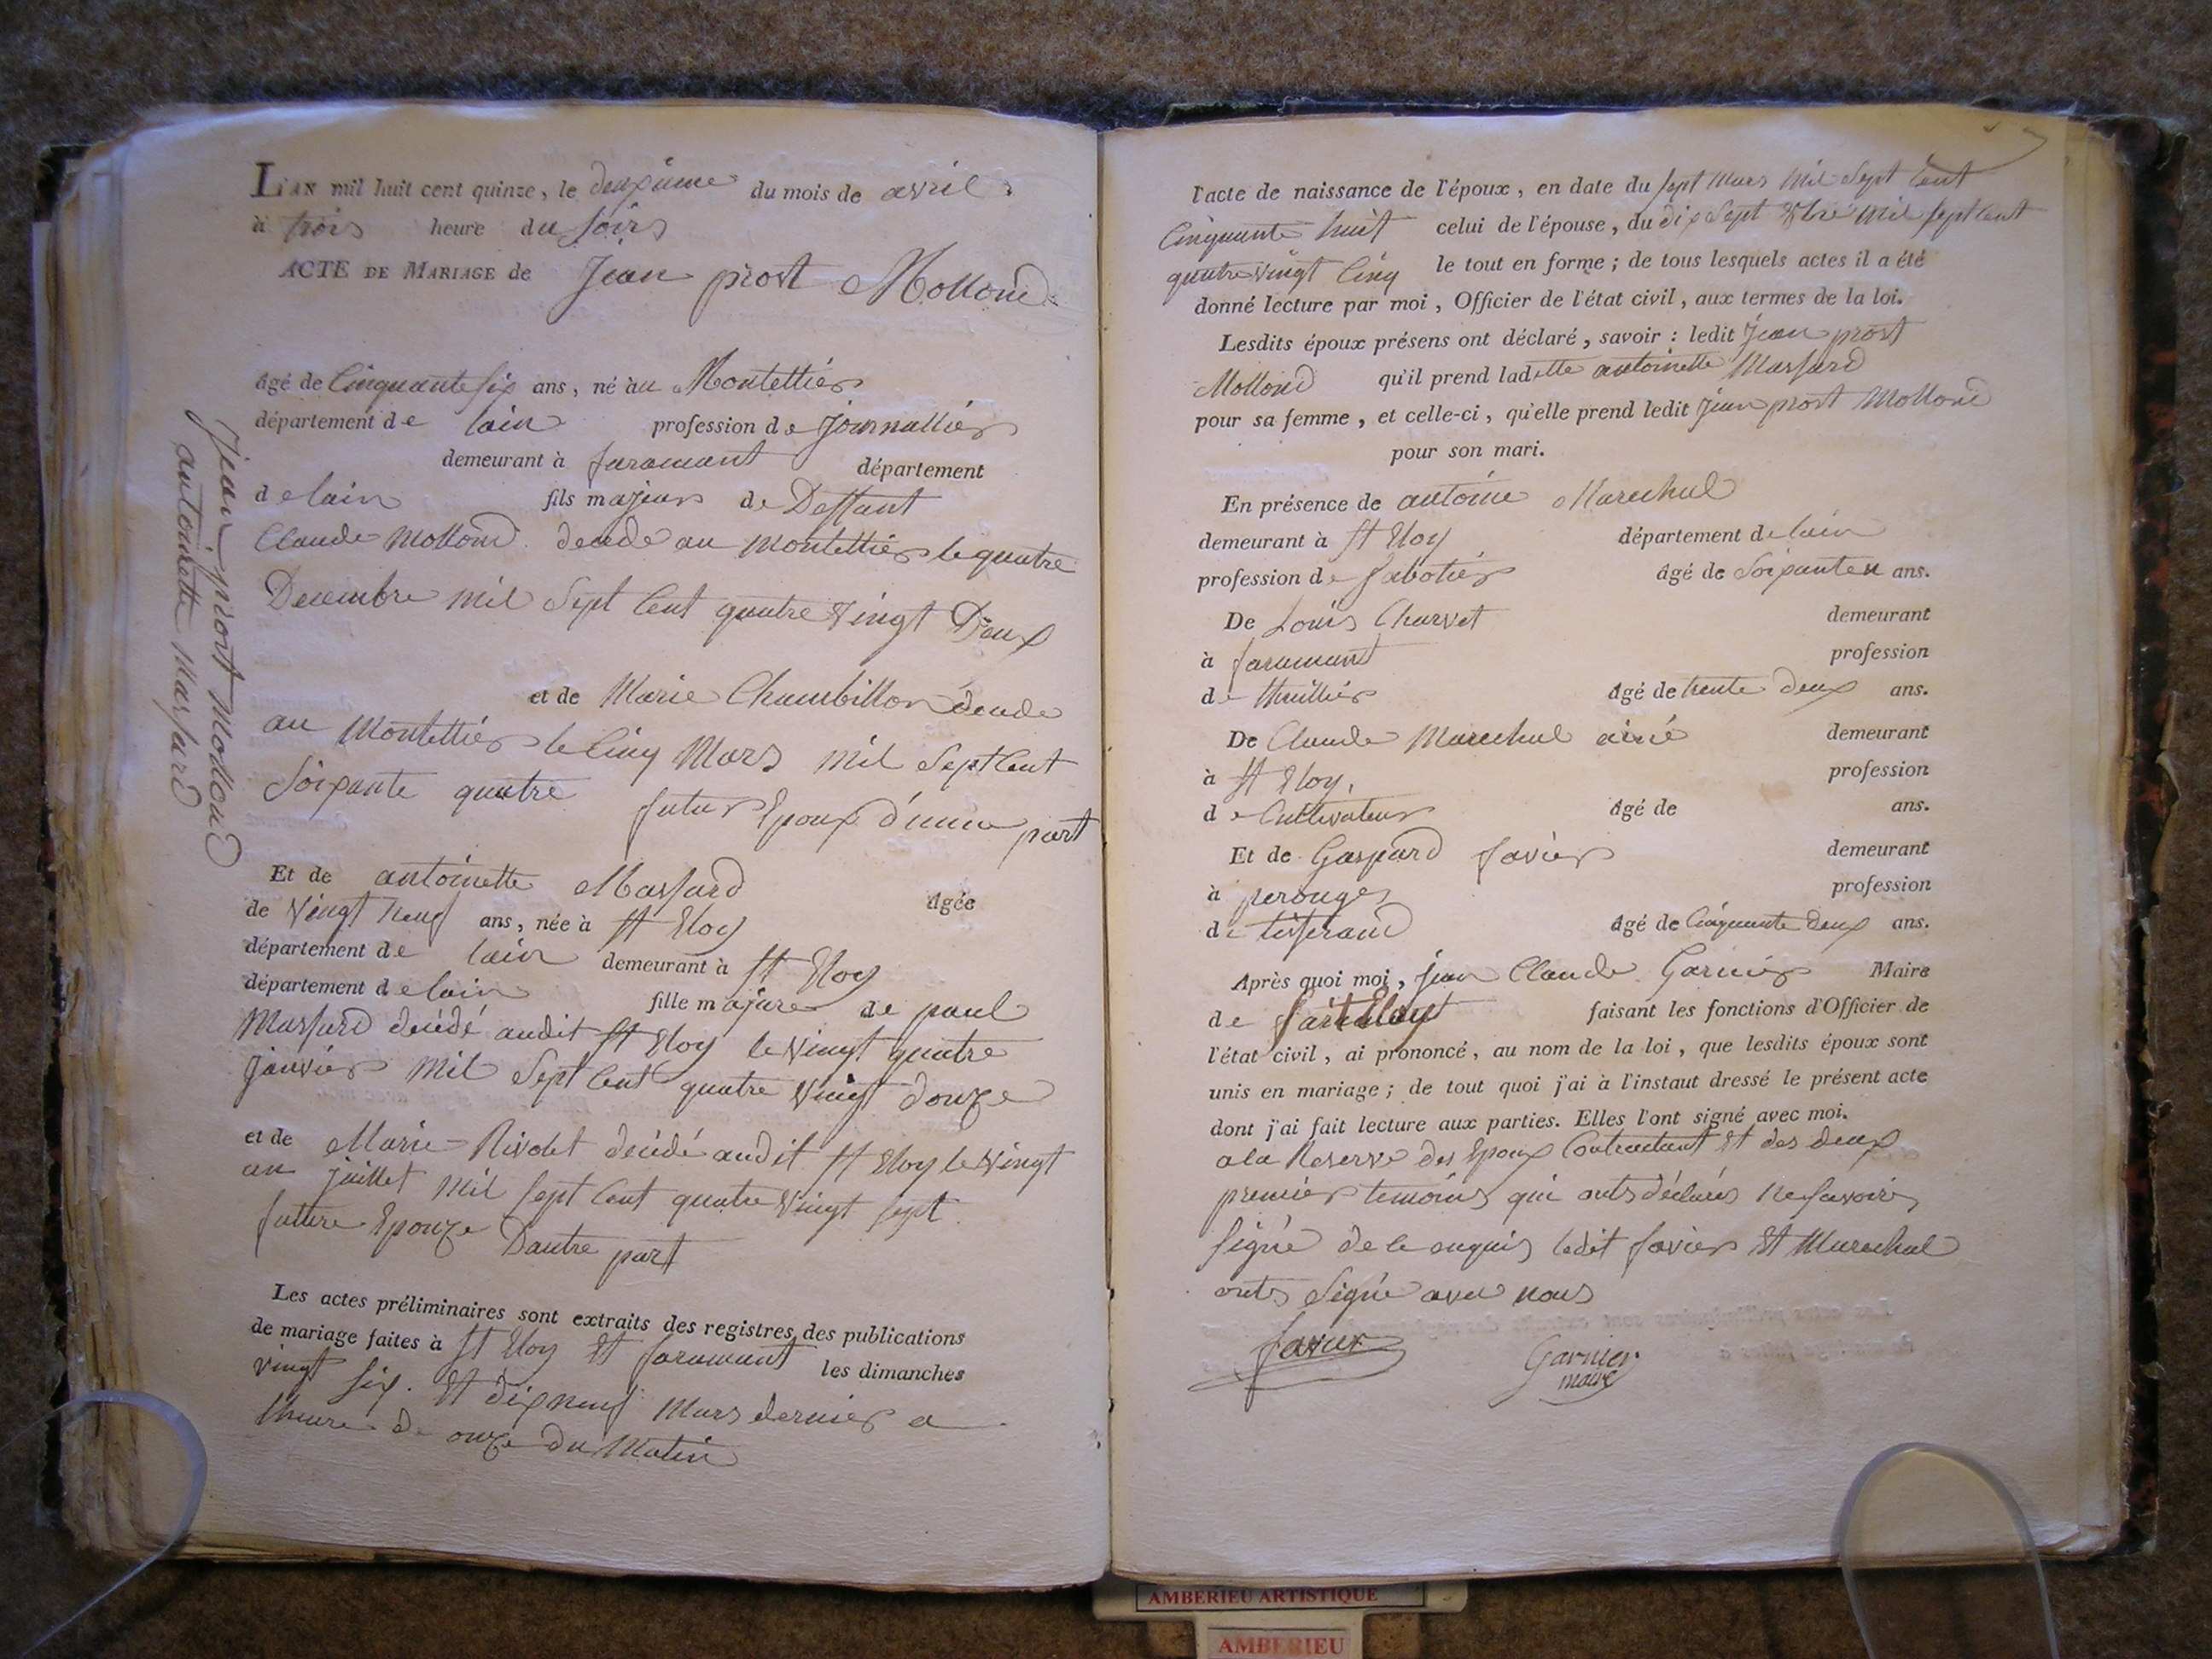 L'an mil huit cent quinze, le deuxieme du mois de avril
à trois heure du soirs
ACTE DE MARIAGE de Jean prost Mollond
âgé de Cinquante six ans, né au Montettier
département de lain profession de Journallier
demeurant à faramant département
de lain fils majeur de Deffant
Claude Mollond decedé au montettier le quatre
Decembre mil Sept Cent quatre Vingt Deux
et de Marie Chambillon decede
au Montettier le Cinq Mars mil Sept Cent
Soixante quatre
futur Epoux d'une part
Et de antoinette Massard âgée
de Vingt neuf ans, née à St Eloy
département de lain demeurant à St Eloy
département de lain fille majure de paul
Massard decédé audit St Eloy le vingt quatre
janvier mil Sept Cent quatre vingt douze
et de Marie Rivolet decédé audit St Eloy le vingt
un juillet mil Sept Cent quatre vingt sept
future Epouze Dautre part
Les actes préliminaires sont extraits des registres des publications
de mariage faites à St Eloy Et faramant les dimanches
vingt six. Et dix neuf Mars dernier a
lheure de onze du Matin
Jean prost Mollond
antoinette Massard
l'acte de naissance de l'époux, en date du sept Mars Mil Sept Cent
Cinquante huit celui de l'épouse, du dix Sept mil sept cent
quatre vingt Cinq le tout en forme; de tous lesquels actes il a été
donné lecture par moi, Officier de l'état civil, aux termes de la loi.
Lesdits époux présens ont déclaré, savoir: ledit Jean prost
Mollond qu'il prend ladette antoinette Massard
pour sa femme, et celle-ci, qu'elle prend ledit Jean prost Mollond
pour son mari.
En présence de antoine Marechal
demeurant à St Eloy département de lain
profession de Sabotier âgé de Soixante ans.
De Louis Charvet demeurant
à faramant profession
de thuillier âgé de trente deux ans.
De Claude Marechal ainé demeurant
à St Eloy, profession
de Cultivateur âgé de ans.
Et de Gaspard favier demeurant
à perouges profession
de tisserand âgé de Cinquante deux ans.
Après quoi moi, jean Claude Garnier Maire
de faisant les fonctions d'Officier de
l'état civil, ai prononcé, au nom de la loi, que lesdits époux sont
unis en mariage; de tout quoi j'ai à l'instaut dressé le présent acte
dont j'ai fait lecture aux parties. Elles l'ont signé avec moi.
a la Reserve des Epoux Contractant Et des deux
premier temoins qui onts déclarés ne savoir
signé de le enquis ledit favier Et Marechal
onts Signé avec nous
favier
Garnier
maire
AMBERIEU ARTISTIQUE
AMBERIEU